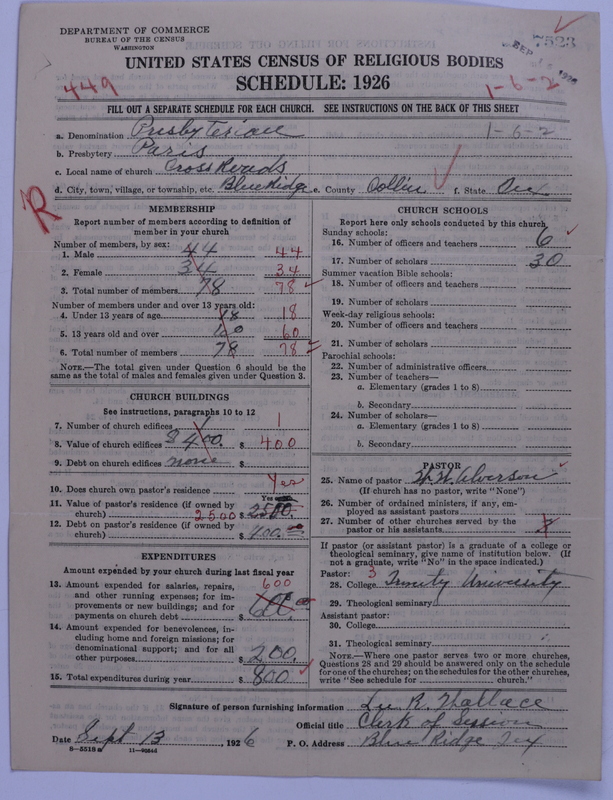 DEPARTMENT OF COMMERCE
BUREAU OF THE CENSUS
WASHINGTON
7523
SEP 1926
449
1-6-2
UNITED STATES CENSUS OF RELIGIOUS BODIES
SCHEDULE: 1926
FILL OUT A SEPARATE SCHEDULE FOR EACH CHURCH. SEE INSTRUCTIONS ON THE BACK OF THIS SHEET
a. Denomination Presbyterian 1-6-2
b. Presbytery Paris
c. Local name of church Cross Roads
d. City, town, village, or township, etc. Blue Ridge e. County Collin f. State Tex
R
MEMBERSHIP
Report number of members according to definition of
member in your church
Number of members, by sex:
1. Male 44 44
2. Female 34 34
3. Total number of members 78 78
Number of members under and over 13 years old:
4. Under 13 years of age 18 18
5. 13 years old and over 60 60
6. Total number of members 78 78
NOTE.—The total given under Question 6 should be
the same as the total of males and females given under Question 3.
CHURCH BUILDINGS
See instructions, paragraphs 10 to 12
7. Number of church edifices 1 1
8. Value of church edifices $400. $ 400
9. Debt on church edifices none $
10. Does church own pastor's residence Yes
Yes
11. Value of pastor's residence (if owned by
church) 2500 $ 2500.
12. Debt on pastor's residence (if owned by
church) $ 400.00
EXPENDITURES
Amount expended by your church during last fiscal year
13. Amount expended for salaries, repairs, 600
and other running expenses; for im-
provements or new buildings; and for
payments on church debt $ 600.00
14. Amount expended for benevolences, in-
cluding home and foreign missions; for
denominational support; and for all
other purposes $ 200.
15. Total expenditures during year $ 800
CHURCH SCHOOLS
Report here only schools conducted by this church
Sunday schools:
16. Number of officers and teachers 6
17. Number of scholars 30
Summer vacation Bible schools:
18. Number of officers and teachers
19. Number of scholars
Week-day religious schools:
20. Number of officers and teachers
21. Number of scholars
Parochial schools:
22. Number of administrative officers
23. Number of teachers—
a. Elementary (grades 1 to 8)
b. Secondary
24. Number of scholars—
a. Elementary (grades 1 to 8)
b. Secondary
PASTOR
25. Name of pastor W. W. Alverson
(If church has no pastor, write "None")
26. Number of ordained ministers, if any, em-
ployed as assistant pastors
27. Number of other churches served by the
pastor or his assistants
If pastor (or assistant pastor) is a graduate of a college or
theological seminary, give name of institution below. (If
not a graduate, write "No" in the space indicated.)
Pastor: 3
28. College Trinity University
29. Theological seminary
Assistant pastor:
30. College
31. Theological seminary
NOTE.—Where one pastor serves two or more churches,
Questions 28 and 29 should be answered only on the schedule
for one of the churches; on the schedules for the other churches,
write "See schedule for church."
Signature of person furnishing information Lee R. Wallace
Official title Clerk of Session
Date Sept 13, 1926 P. O. Address Blue Ridge Tex
8-5518a